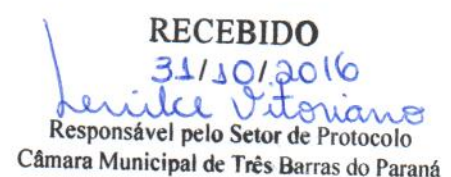 RECEBIDO
31/10/2016
Lenilce Vitoriano
Responsável pelo Setor de Protocolo
Câmara Municipal de Três Barras do Paraná